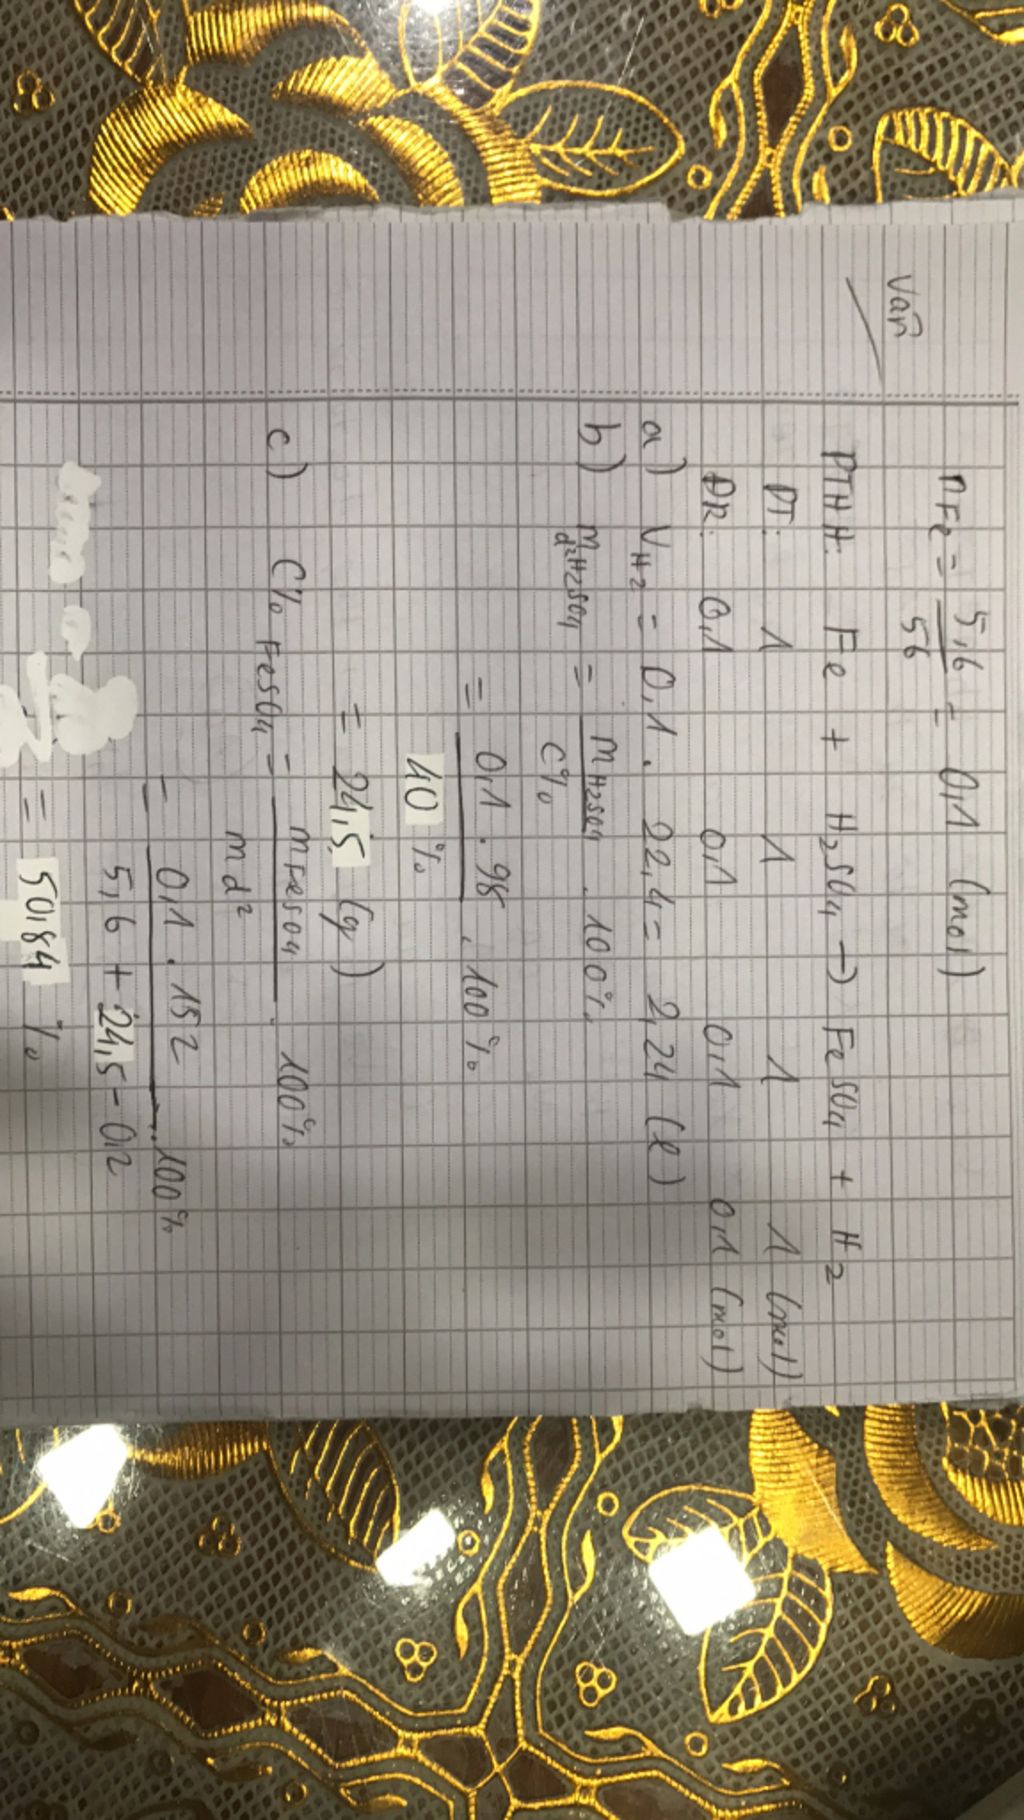 Vañ
nFe = 5,6 / 56 = 0,1 (mol)
PTHH: Fe + H2SO4 → FeSO4 + H2
PT: 1 1 1 1 (mol)
ĐR: 0,1 0,1 0,1 0,1 (mol)
a) VH2 = 0,1 . 22,4 = 2,24 (l)
b) md²H2SO4 = mH2SO4 / C% . 100%
= 0,1 . 98 / 40 % . 100%
= 24,5 (g)
c) C% FeSO4 = mFeSO4 / md² . 100%
= 0,1 . 152 / 5,6 + 24,5 - 0,2 . 100%
= 50,84 %